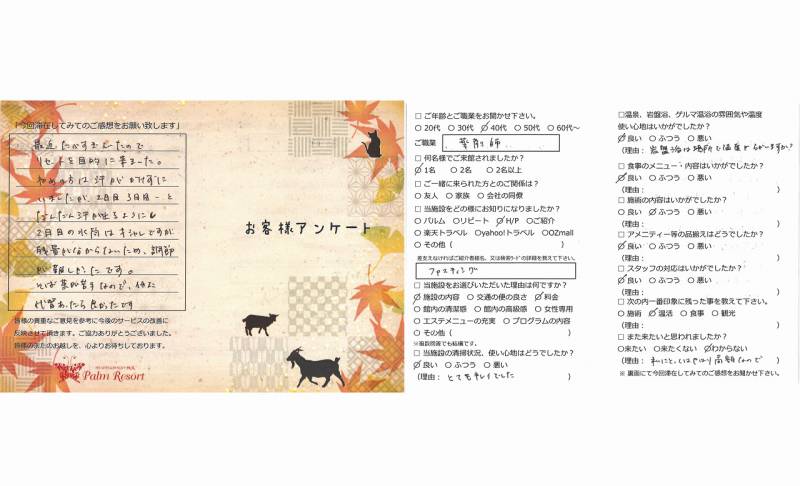 「今回滞在してみてのご感想をお願い致します」
リセットを目的に来ました。
初めの方は汗がかけずに
いましたが、2日目3日目…と
だんだん汗が出るように
2日目の水筒はオシャレですが
残量がわからないため、調節
が難しかったです。
そば茶が苦手なので、他に
代替あったら良かったです
皆様の貴重なご意見を参考に今後のサービスの改善に
反映させて頂きます。ご協力ありがとうございました。
皆様のまたのお越しを、心よりお待ちしております。
Palm Resort
お客様アンケート
□ ご年齢とご職業をお聞かせ下さい。
○ 20代 ○ 30代 ○ 40代 ○ 50代 ○ 60代～
ご職業 薬剤師
□ 何名様でご来館されましたか?
○1名 ○ 2名 ○ 2名以上
□ ご一緒に来られた方とのご関係は?
○ 友人 ○ 家族 ○ 会社の同僚
□ 当施設をどの様にお知りになりましたか?
○ パルム ○リピート ○ H/P ○ご紹介
○ 楽天トラベル ○yahoo!トラベル ○OZmall
○ その他 ( )
差支えなければご紹介者様名、又は検索ワードの詳細を教えて下さい。
ファスティング
□ 当施設をお選びいただいた理由は何ですか?
○ 施設の内容 ○ 交通の便の良さ ○ 料金
○ 館内の清潔感 ○ 館内の高級感 ○ 女性専用
○ エステメニューの充実 ○ プログラムの内容
○ その他 ( )
※複数回答でも結構です。
□ 当施設の清掃状況、使い心地はどうでしたか?
○ 良い ○ ふつう ○ 悪い
(理由: とてもキレイでした )
□温泉、岩盤浴、ゲルマ温浴の雰囲気や温度
使い心地はいかがでしたか?
○良い ○ ふつう ○ 悪い
(理由: 岩盤浴は場所で温度ちがいますか?
□ 食事のメニュー・内容はいかがでしたか?
○良い ○ ふつう ○ 悪い
(理由: )
□ 施術の内容はいかがでしたか?
○ 良い ○ ふつう ○ 悪い
□ アメニティー等の品揃えはどうでしたか?
○ 良い ○ ふつう ○ 悪い
(理由: )
□ スタッフの対応はいかがでしたか?
○ 良い ○ ふつう ○ 悪い
□ 次の内一番印象に残った事を教えて下さい。
○ 施術 ○ 温活 ○ 食事 ○ 観光
(理由: )
□ また来たいと思われましたか?
○来たい ○ 来たくない ○わからない
(理由: 私にとってはやはり高額なので )
※ 裏面にて今回滞在してみてのご感想をお聞かせ下さい。